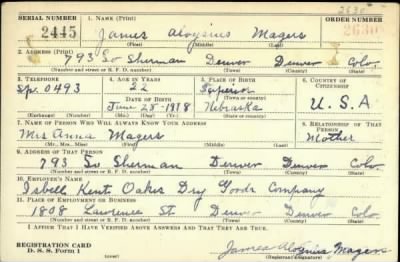 SERIAL NUMBER 1. NAME (Print) ORDER NUMBER
2445 James Aloysius Magers
(First) (Middle) (Last)
2. ADDRESS (Print)
793 So Sherman Denver Denver Colo
(Number and street or R. F. D. number) (Town) (County) (State)
3. TELEPHONE 4. AGE IN YEARS 5. PLACE OF BIRTH 6. COUNTRY OF CITIZENSHIP
Sp. 0493 22 Superior
DATE OF BIRTH (Town or county)
June 25-1918 Nebraska U.S.A
(Exchange) (Number) (Mo.) (Day) (Yr.) (State or country)
7. NAME OF PERSON WHO WILL ALWAYS KNOW YOUR ADDRESS 8. RELATIONSHIP OF THAT PERSON
Mrs Anna Magers Mother
(Mr., Mrs., Miss) (First) (Middle) (Last)
9. ADDRESS OF THAT PERSON
793 So Sherman Denver Denver Colo
(Number and street or R. F. D. number) (Town) (County) (State)
10. EMPLOYER'S NAME
Isbell Kent Oakes Dry Goods Company
11. PLACE OF EMPLOYMENT OR BUSINESS
1808 Lawrence St Denver Denver Colo
(Number and street or R. F. D. number) (Town) (County) (State)
I AFFIRM THAT I HAVE VERIFIED ABOVE ANSWERS AND THAT THEY ARE TRUE.
REGISTRATION CARD
D. S. S. Form 1 James Aloysius Magers
(Registrant's signature)